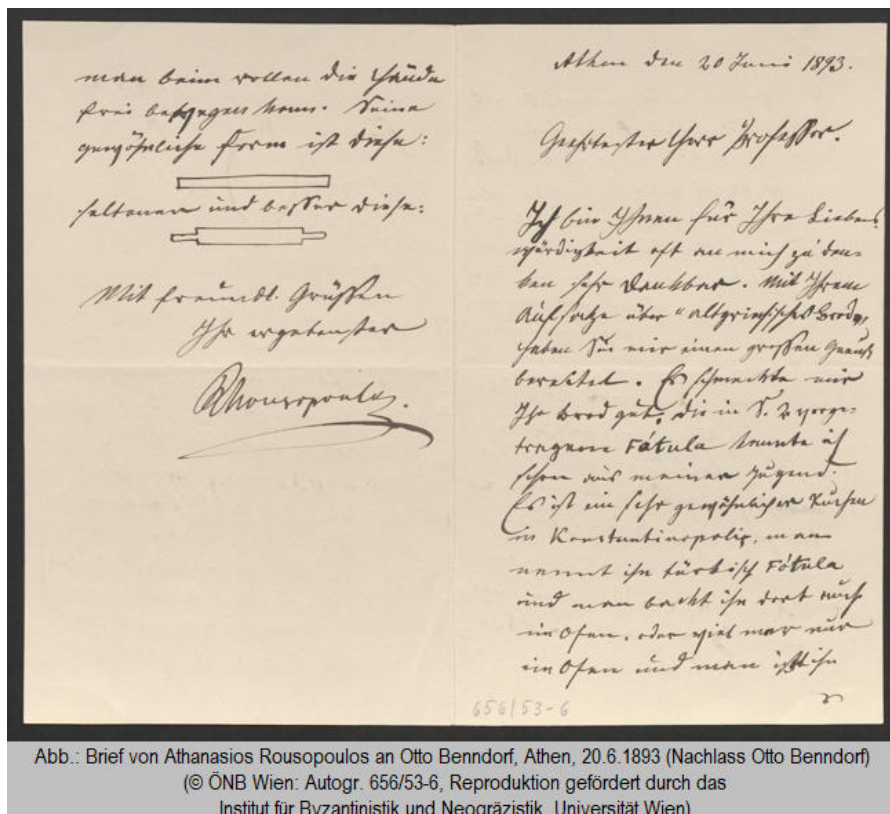 man beim rollen die Hände
frei bewegen kann. Seine
gewöhnliche Form ist diese:
seltener und besser diese:
Mit freundl. Grüssen
Ihr ergebenster
Rhousopoulos.
Athen den 20 Juni 1893.
Geehrtester Herr Professor.
Ich bin Ihnen für Ihre Liebens-
würdigkeit oft an mich zu den-
ken sehr dankbar. Mit Ihrem
Aufsatze über "altgriechisches Brod"
haben Sie mir einen grossen Genuss
bereitet. Es schmeckte mir
Ihr Brod gut; die in S. 2 vorge-
tragene Fótula kannte ich
schon aus meiner Jugend.
Es ist ein sehr gewöhnlicher Kuchen
in Konstantinopolis, man
nennt ihn türkisch Fótula
und man backt ihn dort auch
im Ofen, oder viel mer nur
im Ofen und man isst ihn
656/53-6
Abb.: Brief von Athanasios Rousopoulos an Otto Benndorf, Athen, 20.6.1893 (Nachlass Otto Benndorf)
(© ÖNB Wien: Autogr. 656/53-6, Reproduktion gefördert durch das
Institut für Byzantinistik und Neogräzistik, Universität Wien)